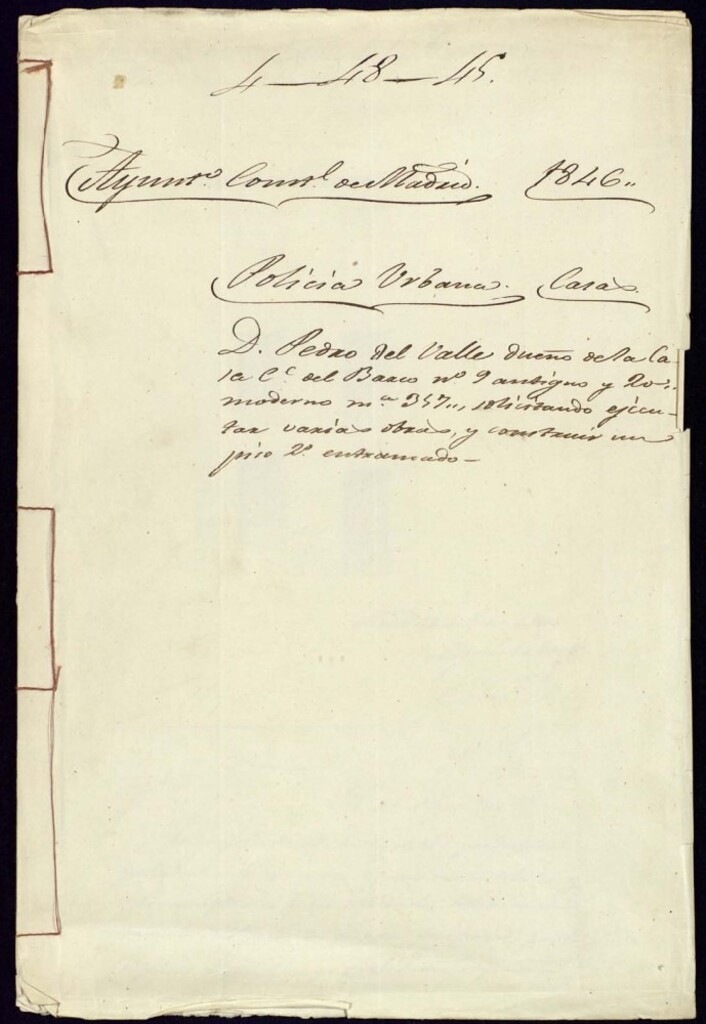 4-48-45.
Ayunto. Constl. de Madrid. 1846,,
Policia Urbana. Casas.
D. Pedro del Valle dueño de la Ca-
sa Ce. del Barco nº 9 antiguo y 20
moderno mna 357,, solicitando ejecu-
tar varias obras, y construir un
piso 2º entramado-